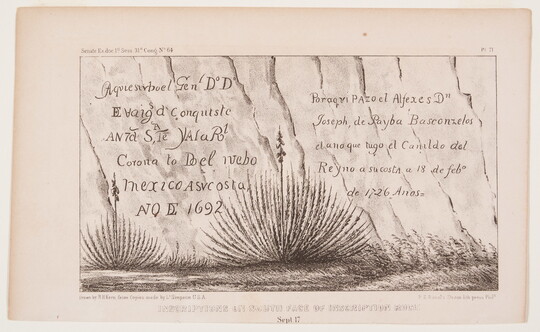 Senate Ex doc 1st Sess 31st Cong. No 64
Pl. 71
Aqui estubo el Genl Do Do
E Vargs d Conquisto
A Nta S. Fe Y A La Rl
Corona to Do el nuebo
Mexico A su costa,
AÑO DE 1692
Por aqui Pazo el Alferes Dn
Joseph, de Payba Basconzelos
el ano que tugo el Cauildo del
Reyno a su costa a 18 de febo
de 1726 Anos=
Drawn by R H Kern from Copies made by Lt Simpson U.S.A.
P. S. Duval's Steam lith. press Phila
INSCRIPTIONS ON NORTH FACE OF INSCRIPTION ROCK
Sept 17